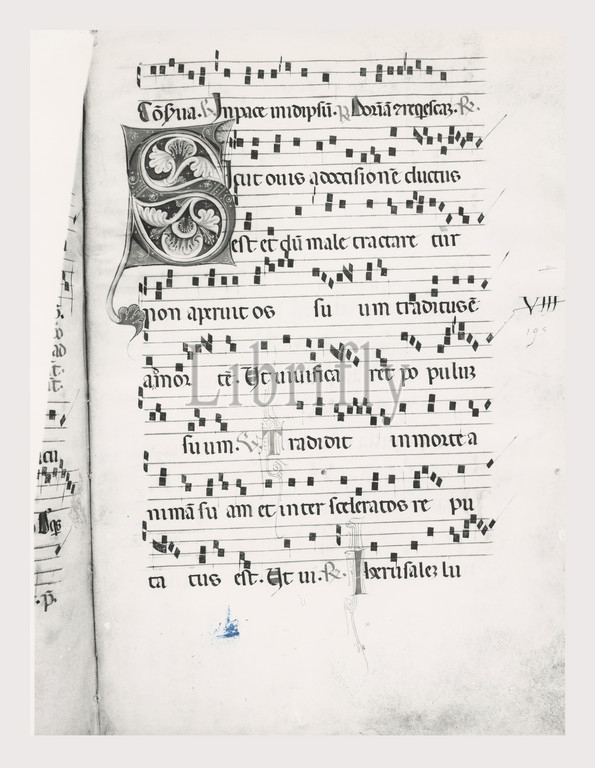 Cōsũa. V. In pace in idipsũ. R. Dorm̃a ⁊ reqescaȝ. R.
Sicut ouis ad occisionē ductus
est et dũ male tractare tur
non aperuit os su um traditus ē
ad mor tē. Ut uiuifica ret po puluȝ
suum. V. Tradidit in morte a
nimā su am et inter sceleratos re pu
ta tus est. Ut ui. R. Iherusaleȝ lu
VIII
195
Librifly